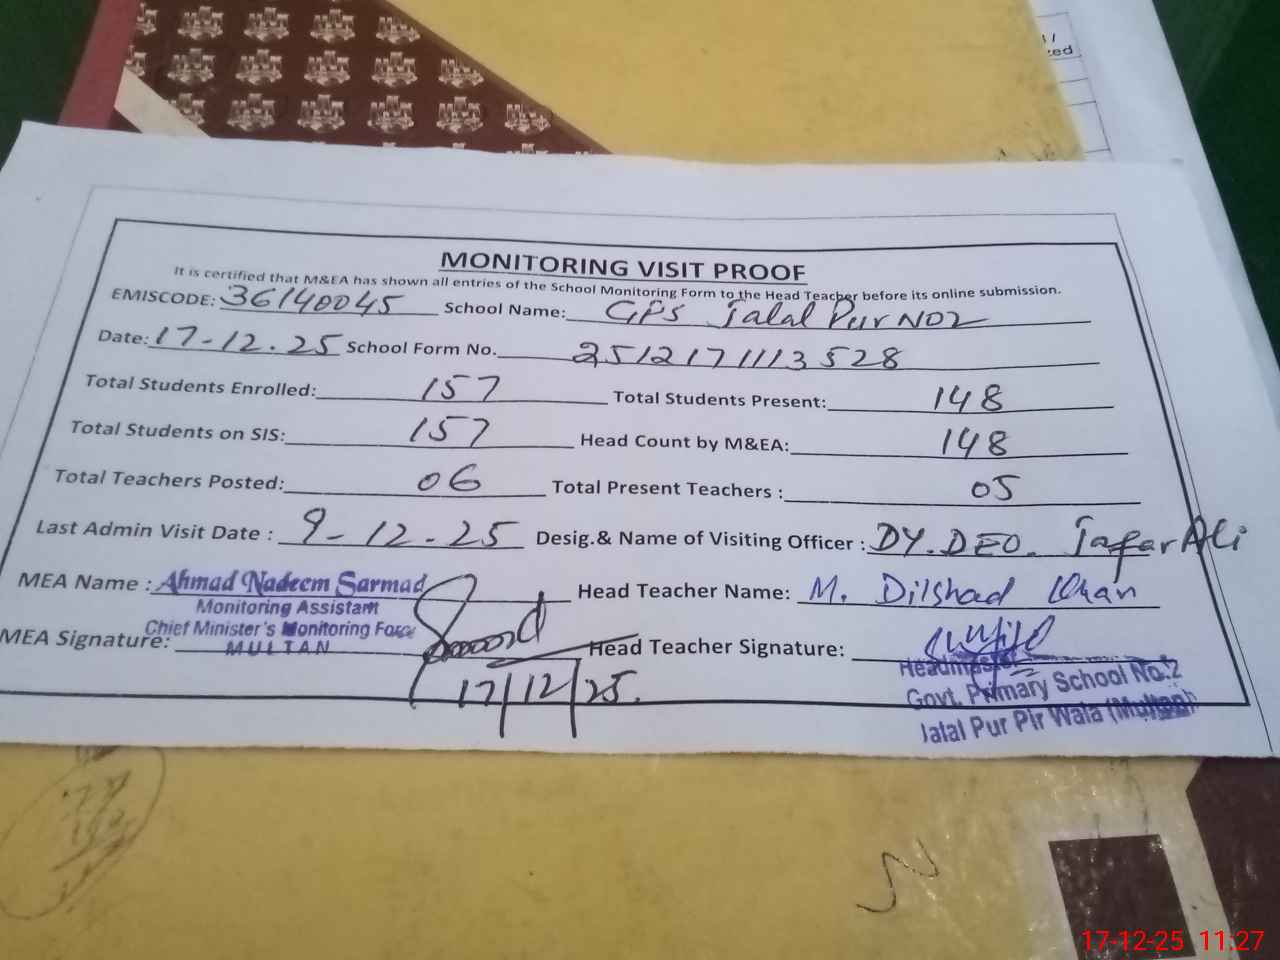 MONITORING VISIT PROOF
It is certified that M&EA has shown all entries of the School Monitoring Form to the Head Teacher before its online submission.
EMISCODE: 36140045 School Name: GPS Jalal Pur NO2
Date: 17-12.25 School Form No. 2512171113528
Total Students Enrolled: 157 Total Students Present: 148
Total Students on SIS: 157 Head Count by M&EA: 148
Total Teachers Posted: 06 Total Present Teachers : 05
Last Admin Visit Date : 9-12-25 Desig.& Name of Visiting Officer : DY.DEO. Jafar Ali
MEA Name : Ahmad Nadeem Sarmad Head Teacher Name: M. Dilshad Khan
Monitoring Assistant
Chief Minister's Monitoring Force
MULTAN
MEA Signature: Head Teacher Signature:
17/12/25.
Headmaster
Govt. Primary School No.2
Jalal Pur Pir Wala (Multan)
17-12-25 11:27